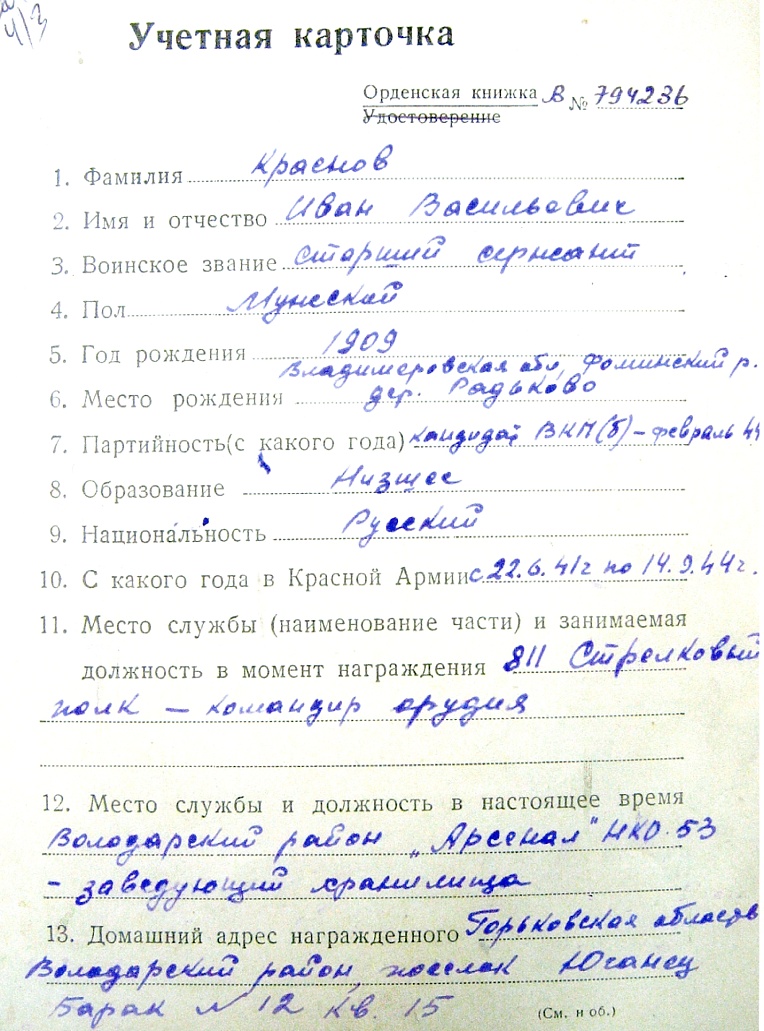 4/3
Учетная карточка
Орденская книжка В № 794236
Удостоверение
1. Фамилия Краснов
2. Имя и отчество Иван Васильевич
3. Воинское звание старший сержант
4. Пол Мужской
5. Год рождения 1909
Владимеровская обл, Фоминский р.
6. Место рождения дер. Радьково
7. Партийность(с какого года) кандидат ВКП(б) – февраль 44
8. Образование Низшее
9. Национальность Русский
10. С какого года в Красной Армии с 22.6.41г по 14.9.44г.
11. Место службы (наименование части) и занимаемая
должность в момент награждения 811 Стрелковый
полк – командир орудия
12. Место службы и должность в настоящее время
Володарский район „Арсенал" НКО 53
- заведующий хранилища
13. Домашний адрес награжденного Горьковская область
Володарский район, поселок Юганец
Барак N 12 кв. 15
(См. н об.)